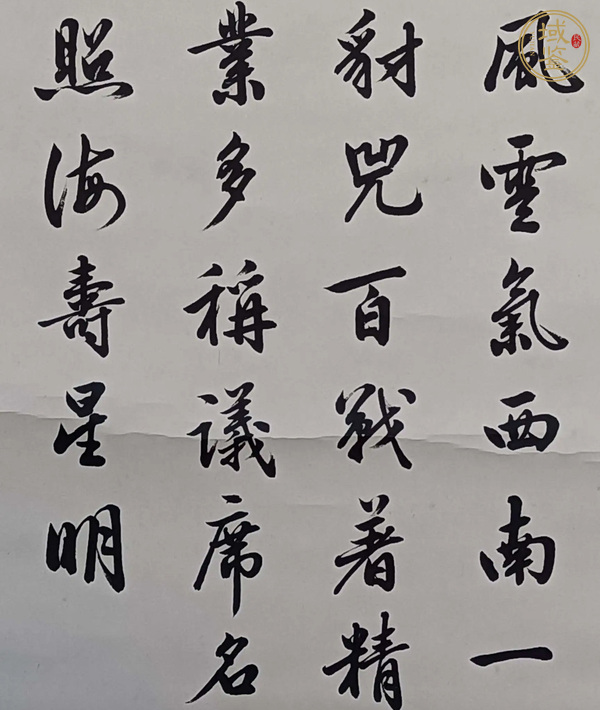 風雲氣西南一
豺兕百戰著精
業多稱議席名
照海壽星明
域鉴